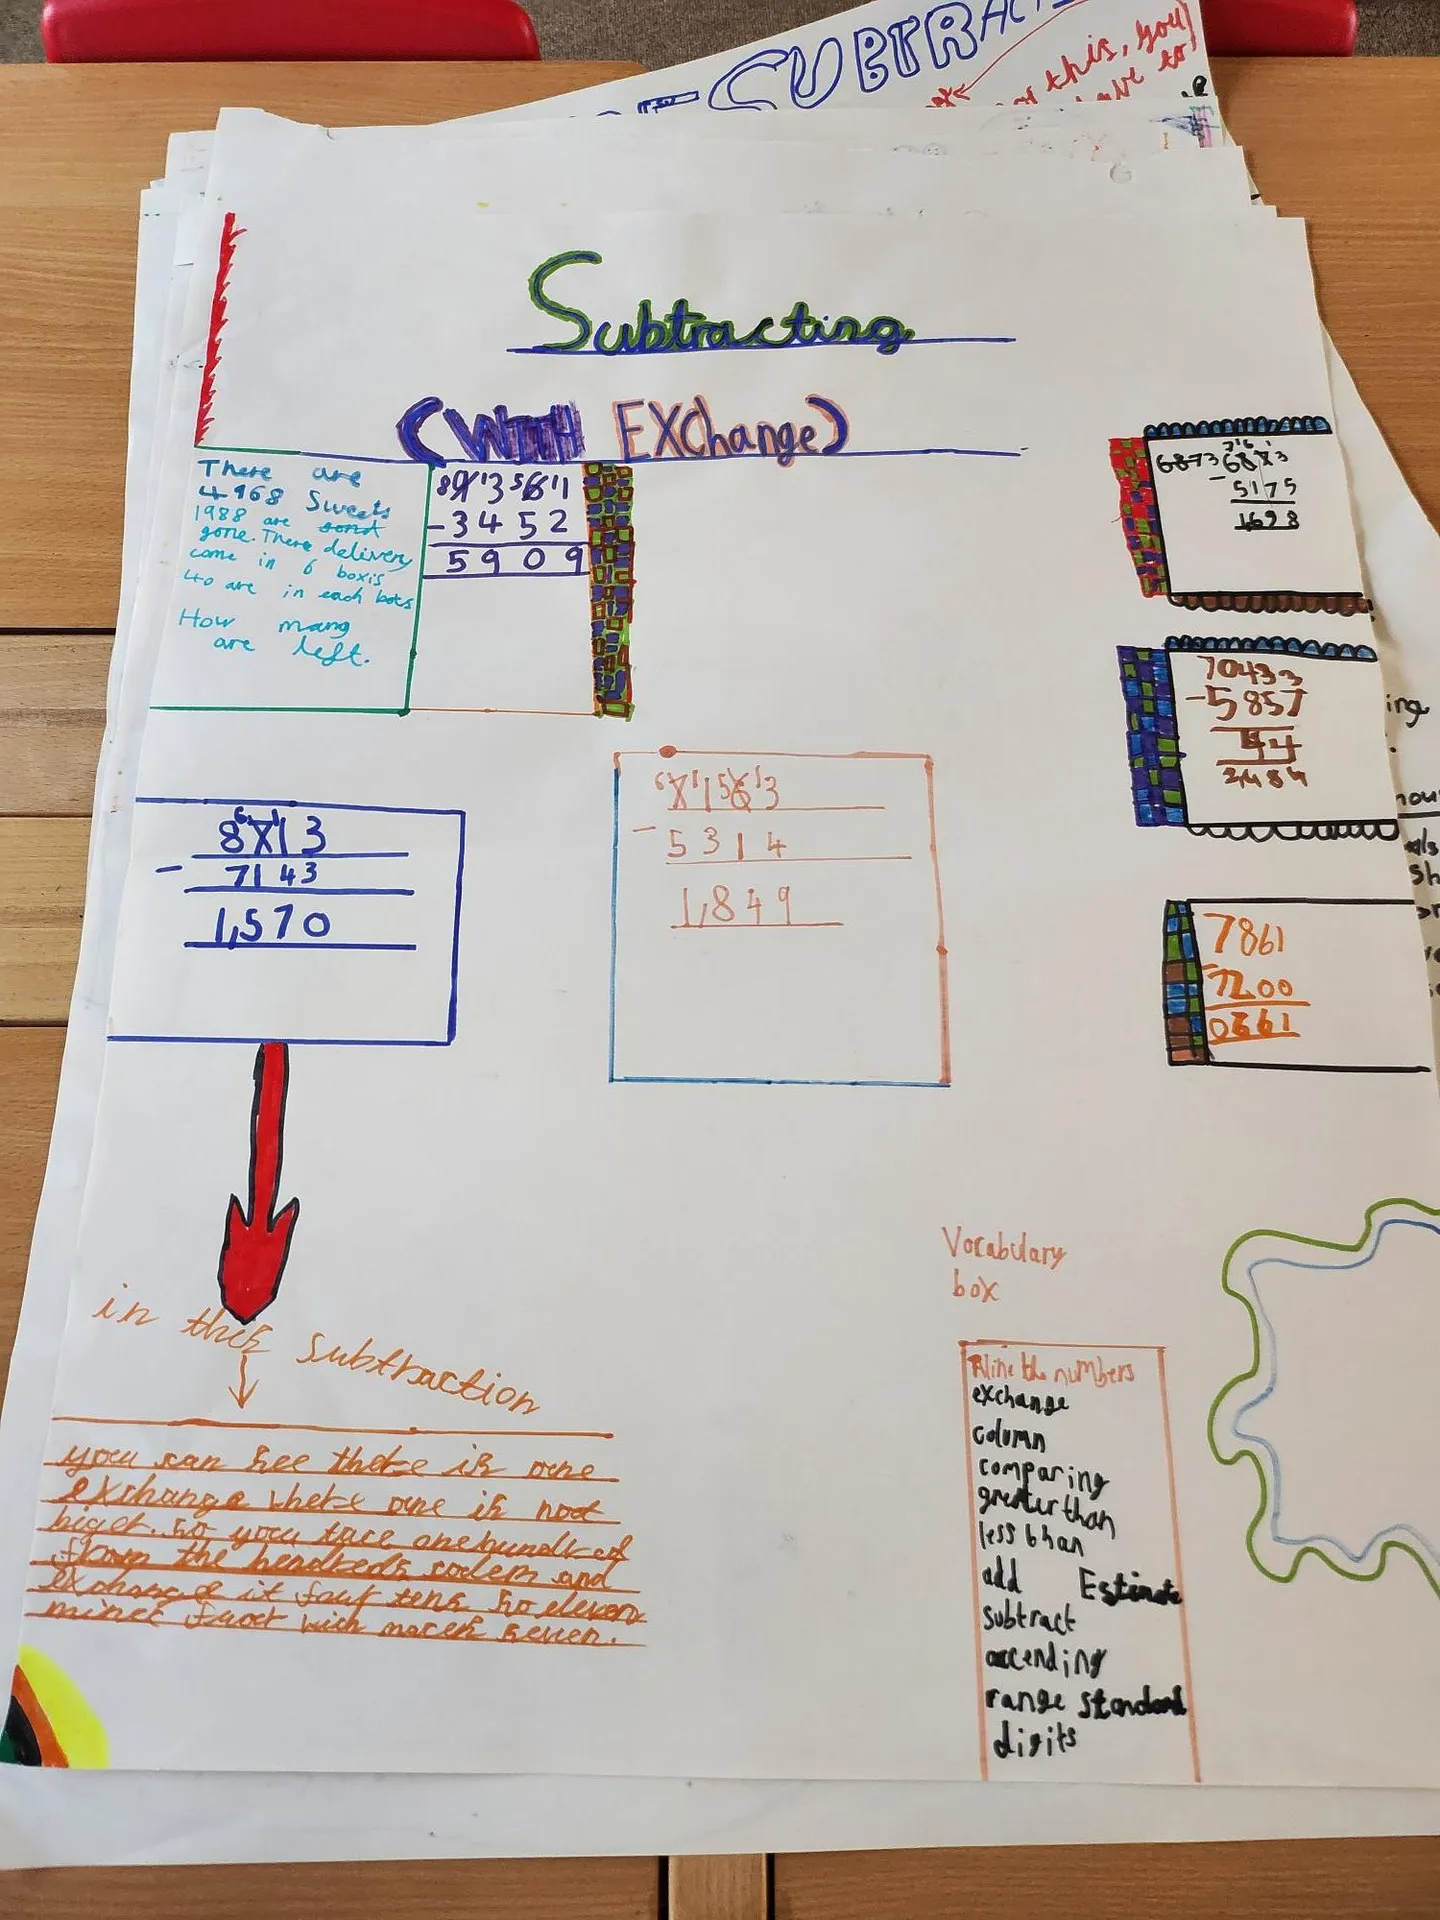 SUBTRA
this, you
have to
Subtracting
(WITH EXChange)
There are
4968 Sweets
1988 are
gone. There delivery
come in 6 boxis
40 are in each
How many
are left.
9361
-3452
5909
6873
-5175
1698
70433
-5857
7861
-7200
0661
8713
-7143
1,570
7163
-5314
1,849
in the subtraction
you can see there is one
exchange where one is not
biger. so you take one hundred
from the hendreds colem and
exchange it four tens so eleven
minec four wich macek seven.
Vocabulary
box
Aline the numbers
exchange
column
comparing
greater than
less than
add Estimate
subtract
ascending
range standard
digits
ing